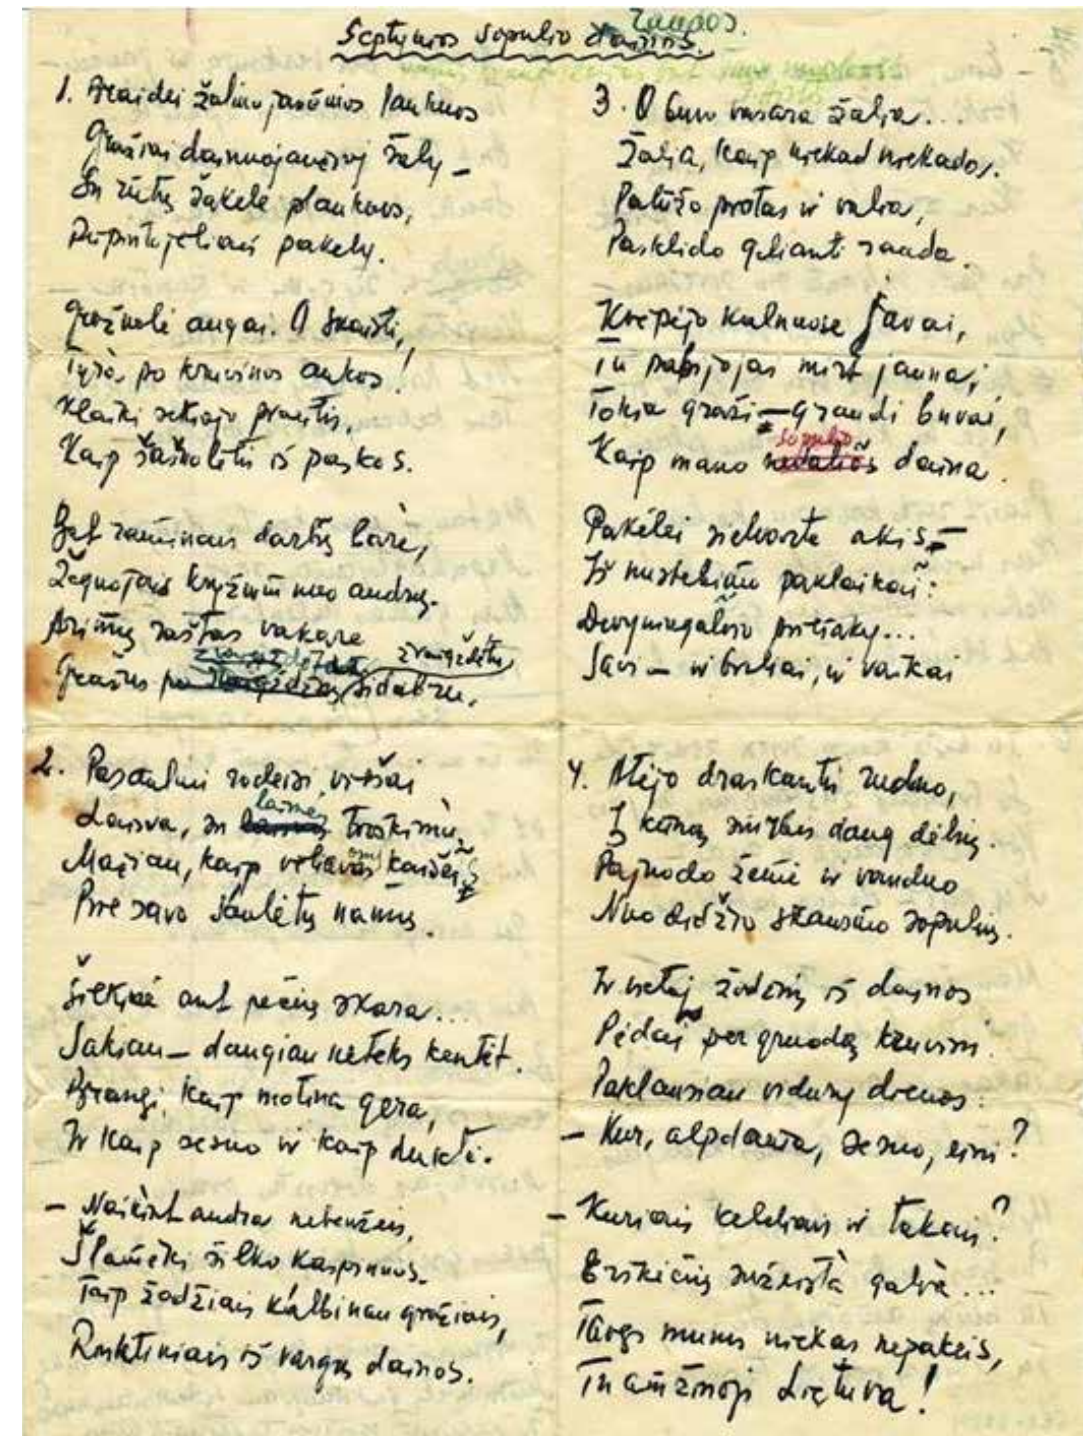 Septynios sopulio dainos. raudos.
1. Braidei žaliuojančiios laukuos
Gražiai dainuojančioj šaly –
Su rūtų šakele plaukuos,
Purpintujėliais pakely.
Gražuolė augai. O skaisti,
Tyra, po kruvinos aukos!
Klaiki sekiojo praeitis,
Kaip šašvolėtis iš paskos.
Bet raminais darbų bare,
Žegnojais kryžium nuo audrų.
Arimų raštas vakare
Gražus žvaigždėtu sidabru.
2. Pasauliui rodeisi viešai
Laisva, su laimės troškimu,
Mačiau, kaip vėliavas kaišei
Prie savo saulėtų namų.
Šilkinė ant pečių skara...
Sakiau – daugiau neteks kentėt.
Brangi, kaip motina gera,
Ir kaip sesuo ir kaip duktė.
– Naikint audra nebeužeis,
Šlamėki šilko kaspinuos.
Taip žodžiais kalbinau gražiais,
Rinktiniais iš vargų dainos.
3. O buvo vasara žalia...
Žalia, kaip niekad niekados.
Palūžo protas ir valia,
Pasklido gelianti rauda.
Kvepėjo kalnuose javai,
Tu pabijojai mirt jauna;
Tokia graži – graudi buvai,
Kaip mano sopulio daina.
Pakėlei sielvarto akis –
Iš nustebimo paklaikai:
Devyniagalvio prišaky...
Savi – ir broliai, ir vaikai
4. Atėjo draskantis ruduo,
Į kūną siurbės daug dėlių.
Pajuodo žemė ir vanduo
Nuo didžio skausmo sopulių.
Ir vietoj žodžių iš dainos
Pėdai per gruodą kruvini.
Paklausiau vidury dienos:
– Kur, alpdama, sesuo, eini?
– Kuriais keleliais ir takais?
Erškėčių sužeista galva...
Tavęs mums niekas nepakeis,
Tu amžinoji Lietuva!